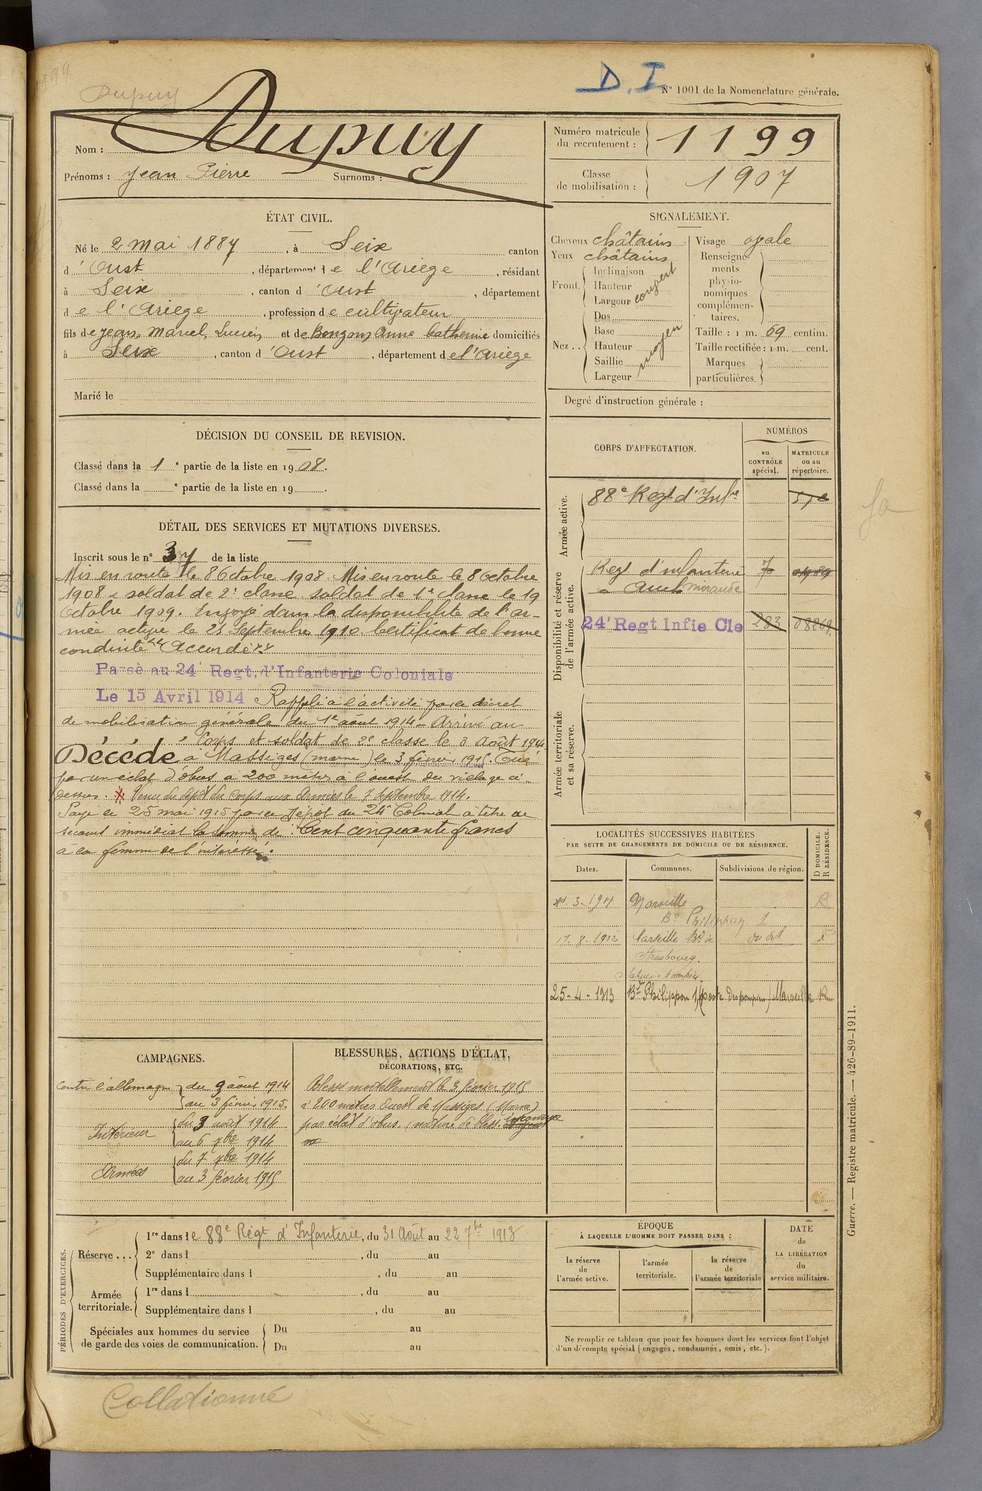 Dupuy
D. I.
N° 1001 de la Nomenclature générale.
Nom : Dupuy
Prénoms : Jean Pierre Surnoms :
Numéro matricule du recrutement : 1199
Classe de mobilisation : 1907
ÉTAT CIVIL.
Né le 2 mai 1887, à Seix canton
d'Oust, département de l'Ariège, résidant
à Seix, canton d'Oust, département
de l'Ariège, profession de cultivateur
fils de Jean, Marcel, Lucien et de Anne Catherine domiciliés
à Seix, canton d'Oust, département de l'Ariège
Marié le
SIGNALEMENT.
Cheveux châtains
Yeux châtains
Front. Inclinaison
Hauteur
Largeur
Dos
Nez.. Base
Hauteur
Saillie
Largeur
moyen
Visage ovale
Renseignements physionomiques complémentaires.
Taille : 1 m. 69 centim.
Taille rectifiée : 1 m. cent.
Marques particulières.
Degré d'instruction générale :
DÉCISION DU CONSEIL DE REVISION.
Classé dans la 1e partie de la liste en 1908.
Classé dans la e partie de la liste en 19 .
CORPS D'AFFECTATION.
NUMÉROS
au CONTRÔLE spécial.
MATRICULE ou au répertoire.
Armée active.
88e Regt d'Infie
Disponibilité et réserve de l'armée active.
Regt d'infanterie
24e Regt Infie Cle 283
Armée territoriale et sa réserve.
DÉTAIL DES SERVICES ET MUTATIONS DIVERSES.
Inscrit sous le n° 37 de la liste
Mis en route le 8 Octobre 1908. Mis en route le 8 octobre
1908 - soldat de 2e classe soldat de 1e classe le 19
Octobre 1909. Envoyé dans la disponibilité de l'ar-
mée active le 25 Septembre 1910 Certificat de bonne
conduite Accordé.
Passé au 24e Regt. d'Infanterie Coloniale
Le 15 Avril 1914 Rappelé à l'activité par le décret
de mobilisation générale du 1er août 1914. Arrivé au
Corps et soldat de 2e classe le 3 Août 1914
Décédé à Massiges (marne) le 3 février 1915. Tué
par un éclat d'obus à 200 mètres à l'ouest du village ci-
dessus. Venu du dépôt du Corps aux Armées le 7 Septembre 1914.
Payé le 25 mai 1915 par le dépôt du 24e Colonial à titre de
secours immédiat la somme de : Cent cinquante francs
à la femme de l'intéressé.
LOCALITÉS SUCCESSIVES HABITÉES
PAR SUITE DE CHANGEMENTS DE DOMICILE OU DE RÉSIDENCE.
Dates.
Communes.
Subdivisions du région.
D DOMICILE. R RÉSIDENCE.
Marseille R
17-8-1912 Marseille
Strasbourg.
25-4-1913 Bd Philippon Marseille R
CAMPAGNES.
Contre l'allemagne du 3 août 1914
au 3 février 1915.
Intérieur du 3 août 1914
au 6 7bre 1914
Armées du 7 7bre 1914
au 3 février 1915
BLESSURES, ACTIONS D'ÉCLAT,
DÉCORATIONS, ETC.
Blessé mortellement le 3 février 1915
à 200 mètres Ouest de Massiges (Marne)
par éclat d'obus.
PÉRIODES D'EXERCICES.
Réserve... 1re dans le 88e Régt d'Infanterie, du 31 Août au 22 7bre 1913
2e dans l , du au
Supplémentaire dans l , du au
Armée territoriale. 1re dans l , du au
Supplémentaire dans l , du au
Spéciales aux hommes du service de garde des voies de communication. Du au
Du au
ÉPOQUE
À LAQUELLE L'HOMME DOIT PASSER DANS :
la réserve de l'armée active.
l'armée territoriale.
la réserve de l'armée territoriale
DATE de LA LIBÉRATION du service militaire.
Ne remplir ce tableau que pour les hommes dont les services font l'objet
d'un décompte spécial (engagés, condamnés, omis, etc.).
Guerre. — Registre matricule. — 426-89-1911.
Collationné